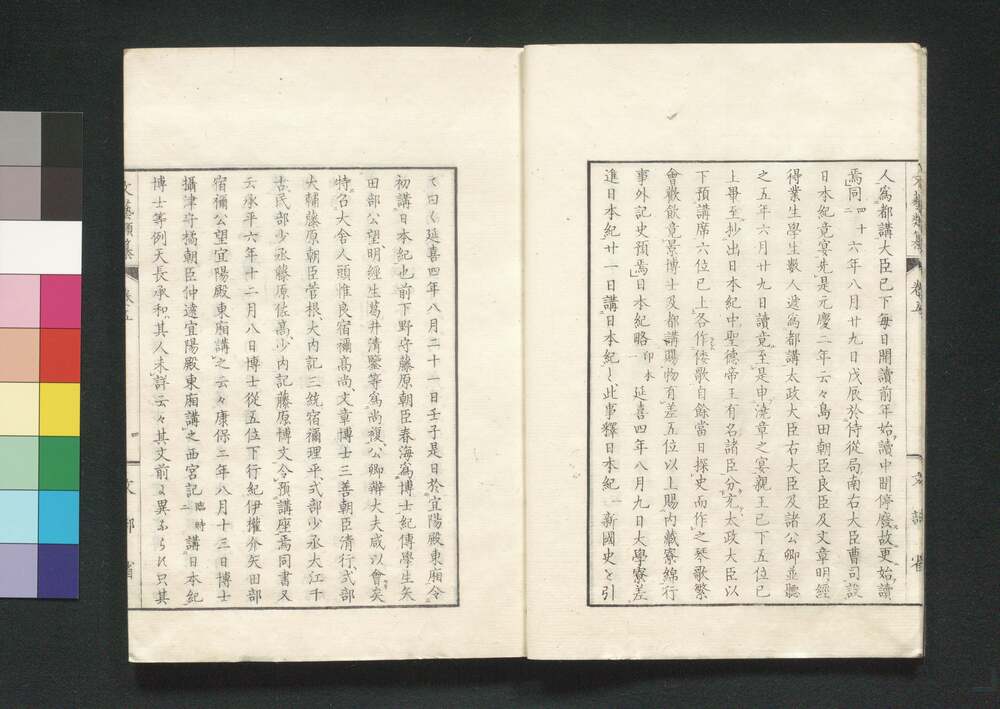 人爲都講大臣已下每日開讀前年始讀中間停廢故更始讀
焉同四十六年八月廿九日戊辰於侍從局南右大臣曹司設
日本紀竟宴先是元慶二年云々島田朝臣良臣及文章明經
得業生學生數人遞爲都講太政大臣右大臣及諸公卿並聽
之五年六月廿九日讀竟至是申澆章之宴親王已下五位已
上畢至抄出日本紀中聖德帝王有名諸臣分充太政大臣以
下預講席六位已上各作倭歌自餘當日探史而作之琴歌繁
會歡飲竟景博士及都講賜物有差五位以上賜內藏寮綿行
事外記史預焉日本紀略印本一延喜四年八月九日大學寮差
進日本紀廿一日講日本紀〻此事釋日本紀一新國史を引
て曰く延喜四年八月二十一日壬子是日於宜陽殿東廂令
初講日本紀也前下野守藤原朝臣春海爲博士紀傳學生矢
田部公望、明經生葛井淸鑒等爲尚複、公卿辨大夫咸以會矣
特召大舍人頭惟良宿禰高尚、文章博士三善朝臣淸行、式部
大輔藤原朝臣菅根大內記三統宿禰理平、式部少丞大江千
古、民部少丞藤原佐高、少內記藤原博文、令預講座焉同書又
云承平六年十二月八日博士從五位下行紀伊權介矢田部
宿禰公望宜陽殿東廂講之云々康保二年八月十三日博士
攝津守橘朝臣仲遠宜陽殿東廂講之西宮記臨時二講日本紀
博士等例天長承和其人未詳云々其文前ま異ふられ只其
文藝類纂 卷五 四 文部省